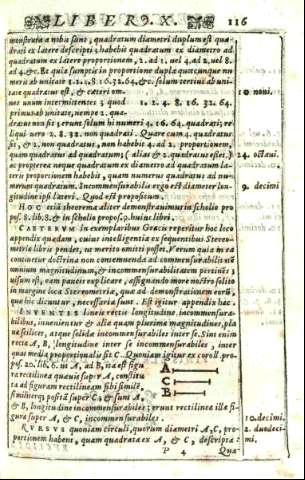 LIBER X. 116
monstrata a nobis sunt, quadratum diametri duplum est quadrati
ex latere descripti; habebit quadratum ex diametro ad
quadratum ex latere proportionem, 2. ad 1. vel 4. ad 2. vel 8.
ad 4. &c. Et quia sumptis in proportione dupla quotcunque numeris
ab unitate 1. 2. 4. 8. 16. 32. 64. &c. solum tertius ab unitate
quadratus est, & cæteri omnes
10 noni.
unum intermittentes; quod 1. 2. 4. 8. 16. 32. 64.
primus ab unitate, nempe 2. quadratus
non sit; erunt solum hi numeri 4. 16. 64. quadrati; reliqui
vero 2. 8. 32. non quadrati. Quare cum 4. quadratus
sit, & 2. non quadratus, non habebit 4. ad 2. proportionem,
quam quadratus ad quadratum; (alias & 2. quadratus esset.)
24. octavi.
ac propterea neque quadratum ex diametro ad quadratum ex
latere proportionem habebit, quam numerus quadratus ad numerum
quadratum. Incommensurabilis ergo est diameter longitudine
9. decimi
ipsi lateri. Quod est propositum.
HOC etiā theorema aliter demonstravimus in scholio propos.
8. lib. 8. & in scholio propos. 9. huius libri.
CÆTERUM in exemplaribus Græcis reperitur hoc loco
appendix quædam, cuius intelligentia ex sequentibus Stereometriæ
libris pendet, ut merito omitti posset. Verum quia in ea
continetur doctrina non contemnenda ad commensurabilitatē
omnium magnitudinum, & incommensurabilitatem pertinēs;
visum est, eam paucis explicare, assignando more nostro solito
in margine loca Stereometriæ, quæ ad demonstrationem eorū,
quæ hic dicuntur, necessaria sunt. Est igitur appendix hæc.
INVENTIS lineis rectis longitudine incommensurabilibus,
invenientur & aliæ quam plurimæ magnitudines, planæ
scilicet, atque solidæ incommensurabiles inter se. Sint enim
rectæ A, B, longitudine inter se incommensurabiles; inter
quas media proportionalis sit C. Quoniam igitur ex coroll. propos.
20. lib. 6. ut A, ad B, ita est figura
A
rectilinea quævis super A, constituta
ad figuram rectilineam sibi similē,
C
similiterq; positā super C; & sunt A,
B
& B, longitudine incommensurabiles; erunt rectilineæ illæ figuræ
super A, & C, incommensurabiles.
10. decimi.
RURSUS quoniam circuli, quorum diametri A, C, proportionem
2. duodecimi.
habent, quam quadrata ex A, & C, descripta:
P 4 Qua-